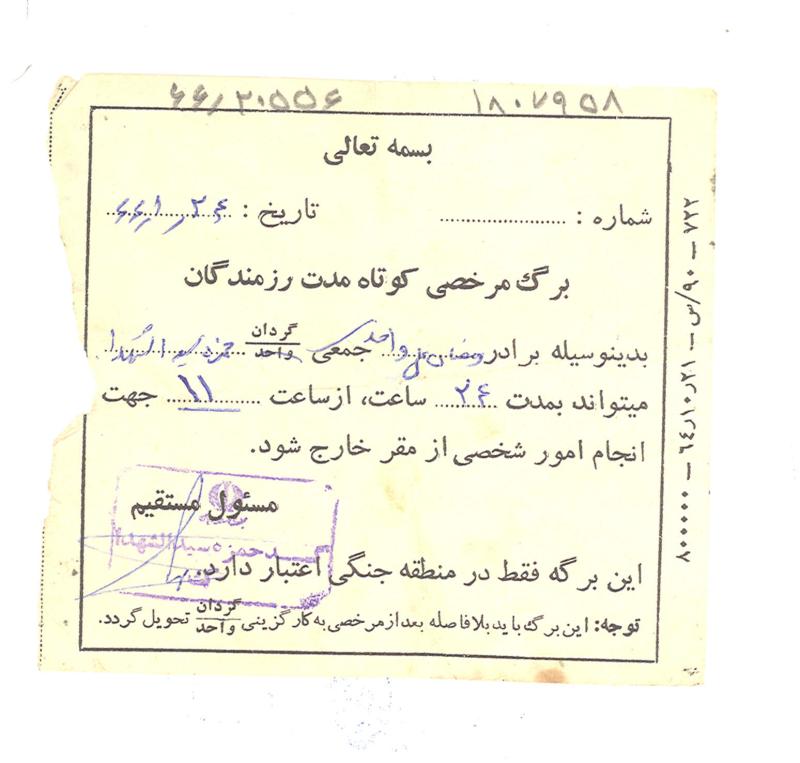 ۶۶/۲۰۵۵۶ ۱۸۰۷۹۵۸
بسمه تعالی
شماره : ........................ تاریخ : ۲۴/۱/۶۶
برگ مرخصی کوتاه مدت رزمندگان
بدینوسیله برادر رمضان علی واحد جمعی گردان/واحد حمزه سید الشهدا
میتواند بمدت ۲۴ ساعت، ازساعت ۱۱ جهت
انجام امور شخصی از مقر خارج شود.
مسئول مستقیم
حمزه سیدالشهداء
این برگه فقط در منطقه جنگی اعتبار دارد.
توجه: این برگ باید بلافاصله بعد از مرخصی به کارگزینی گردان/واحد تحویل گردد.
۷۲۲ – ۹۰/س – ۶۴٫۱۰٫۲۱ – ۸۰۰۰۰۰